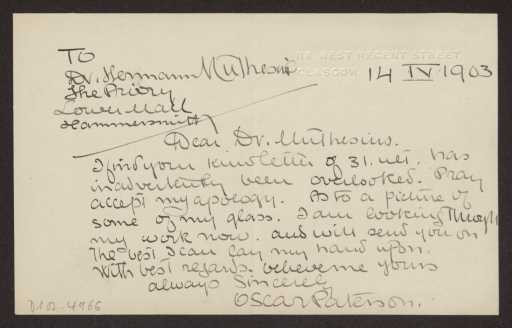 TO
Dr. Hermann Muthesius
The Priory
Lower Mall
Hammersmith
WEST REGENT STREET
GLASGOW
14 IV 1903
Dear Dr. Muthesius.
I find your kind letter of 31. ult. has
inadvertently been overlooked. Pray
accept my apology. As to a picture of
some of my glass. I am looking through
my work now. and will send you on
the best I can lay my hand upon.
With best regards. believe me yours
always Sincerely
Oscar Paterson.
D102-4966